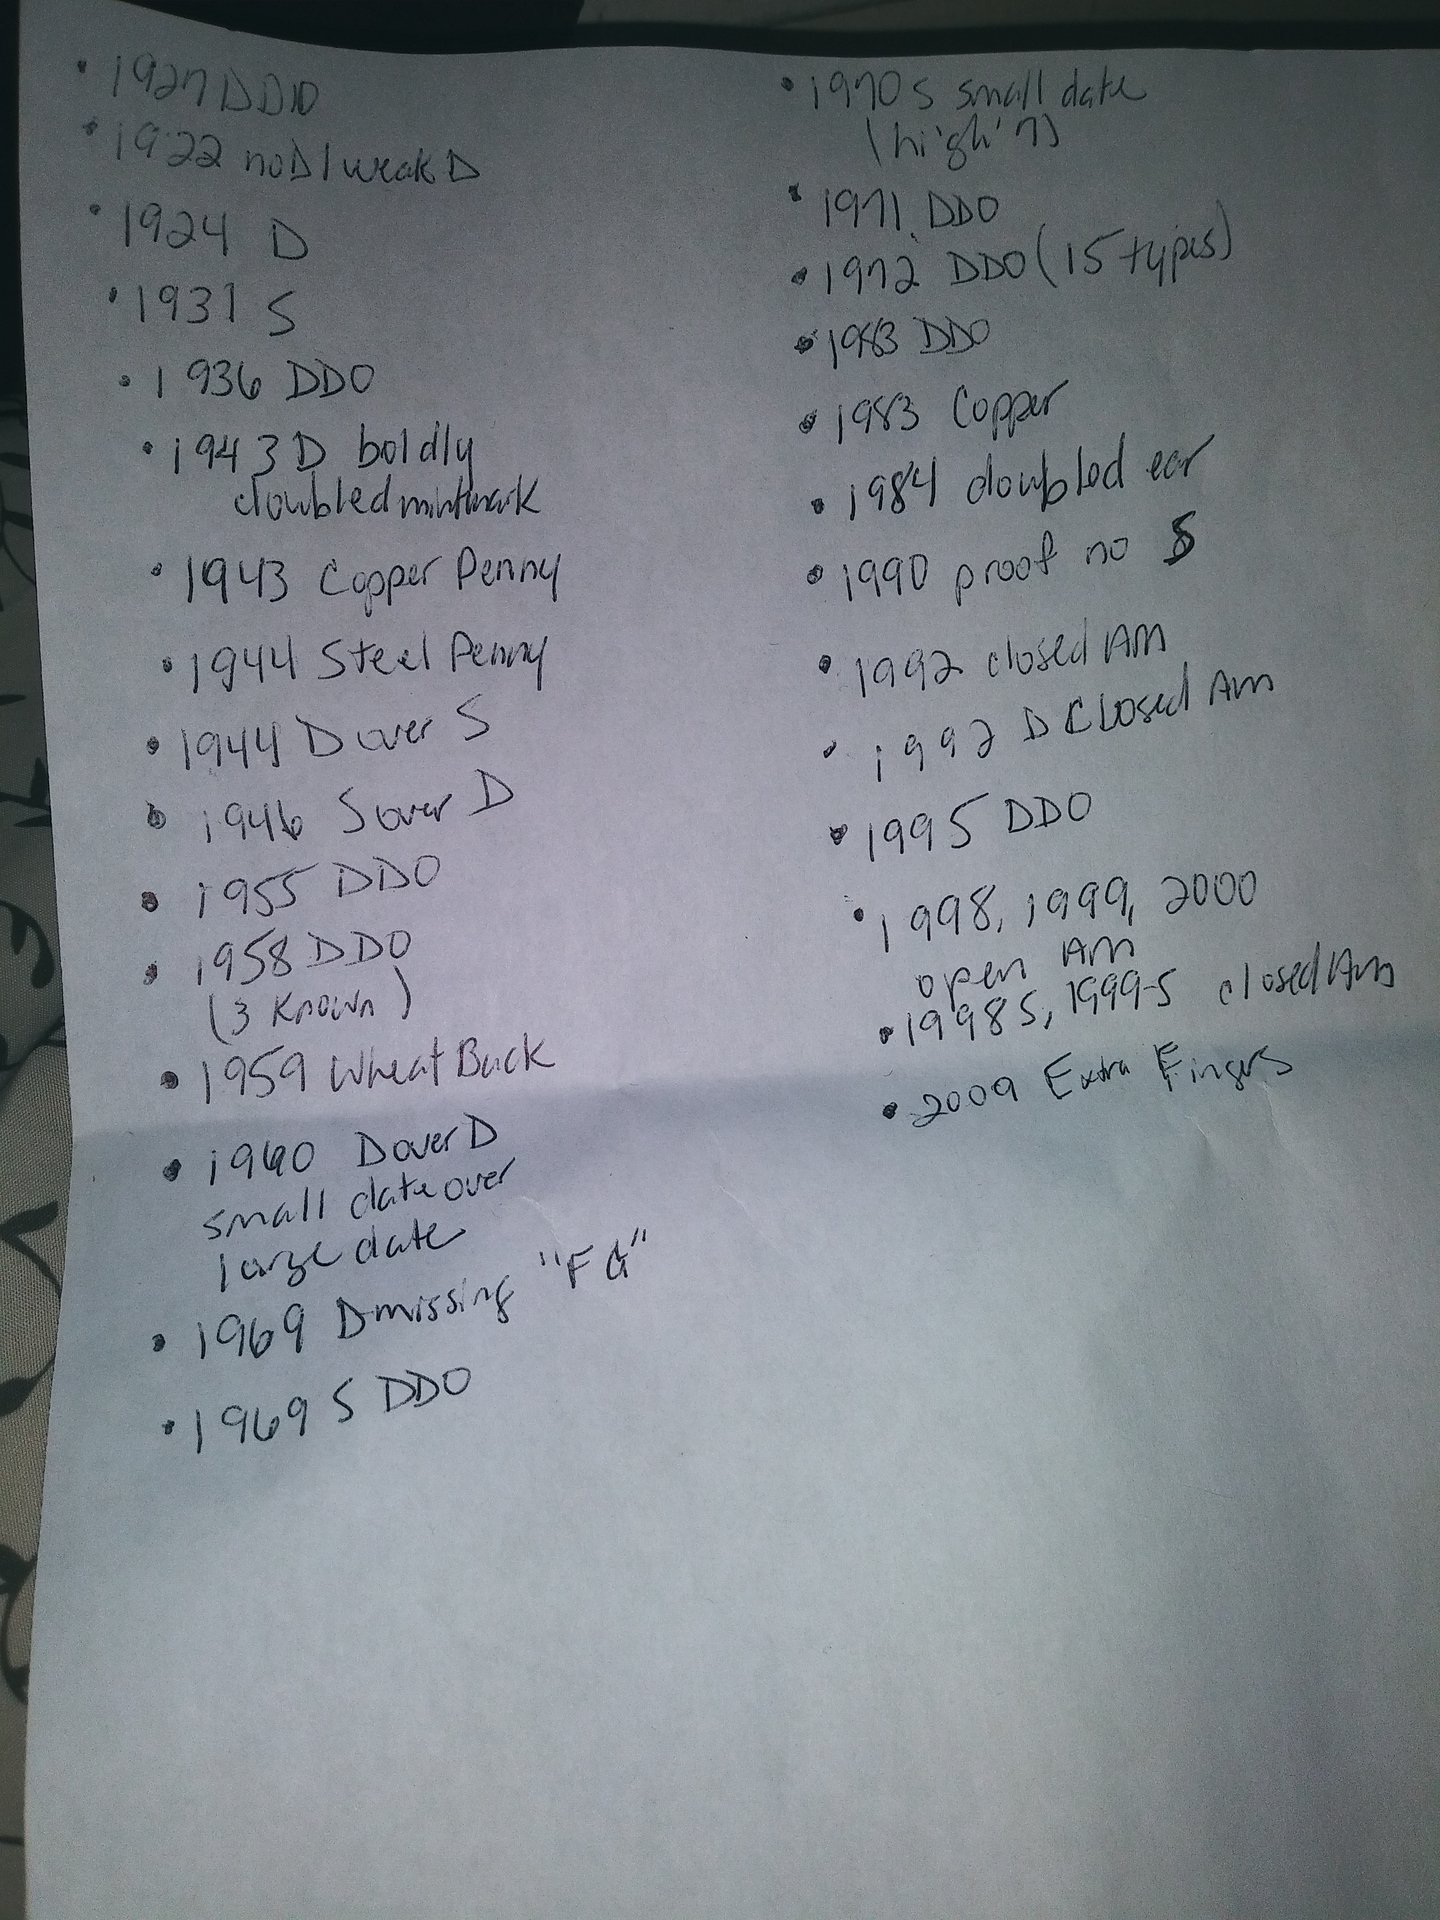 • 1927 DDO
• 1922 no D/weak D
• 1924 D
• 1931 S
• 1936 DDO
• 1943 D boldly
doubled mintmark
• 1943 Copper Penny
• 1944 Steel Penny
• 1944 D over S
• 1946 S over D
• 1955 DDO
• 1958 DDO
(3 known)
• 1959 Wheat Back
• 1960 D over D
small date over
large date
• 1969 D missing "FG"
• 1969 S DDO
• 1970 S small date
(high '7)
• 1971 DDO
• 1972 DDO (15 types)
• 1983 DDO
• 1983 Copper
• 1984 doubled ear
• 1990 proof no S
• 1992 closed AM
• 1992 D Closed AM
• 1995 DDO
• 1998, 1999, 2000
open AM
• 1998 S, 1999-S closed AM
• 2009 Extra Fingers